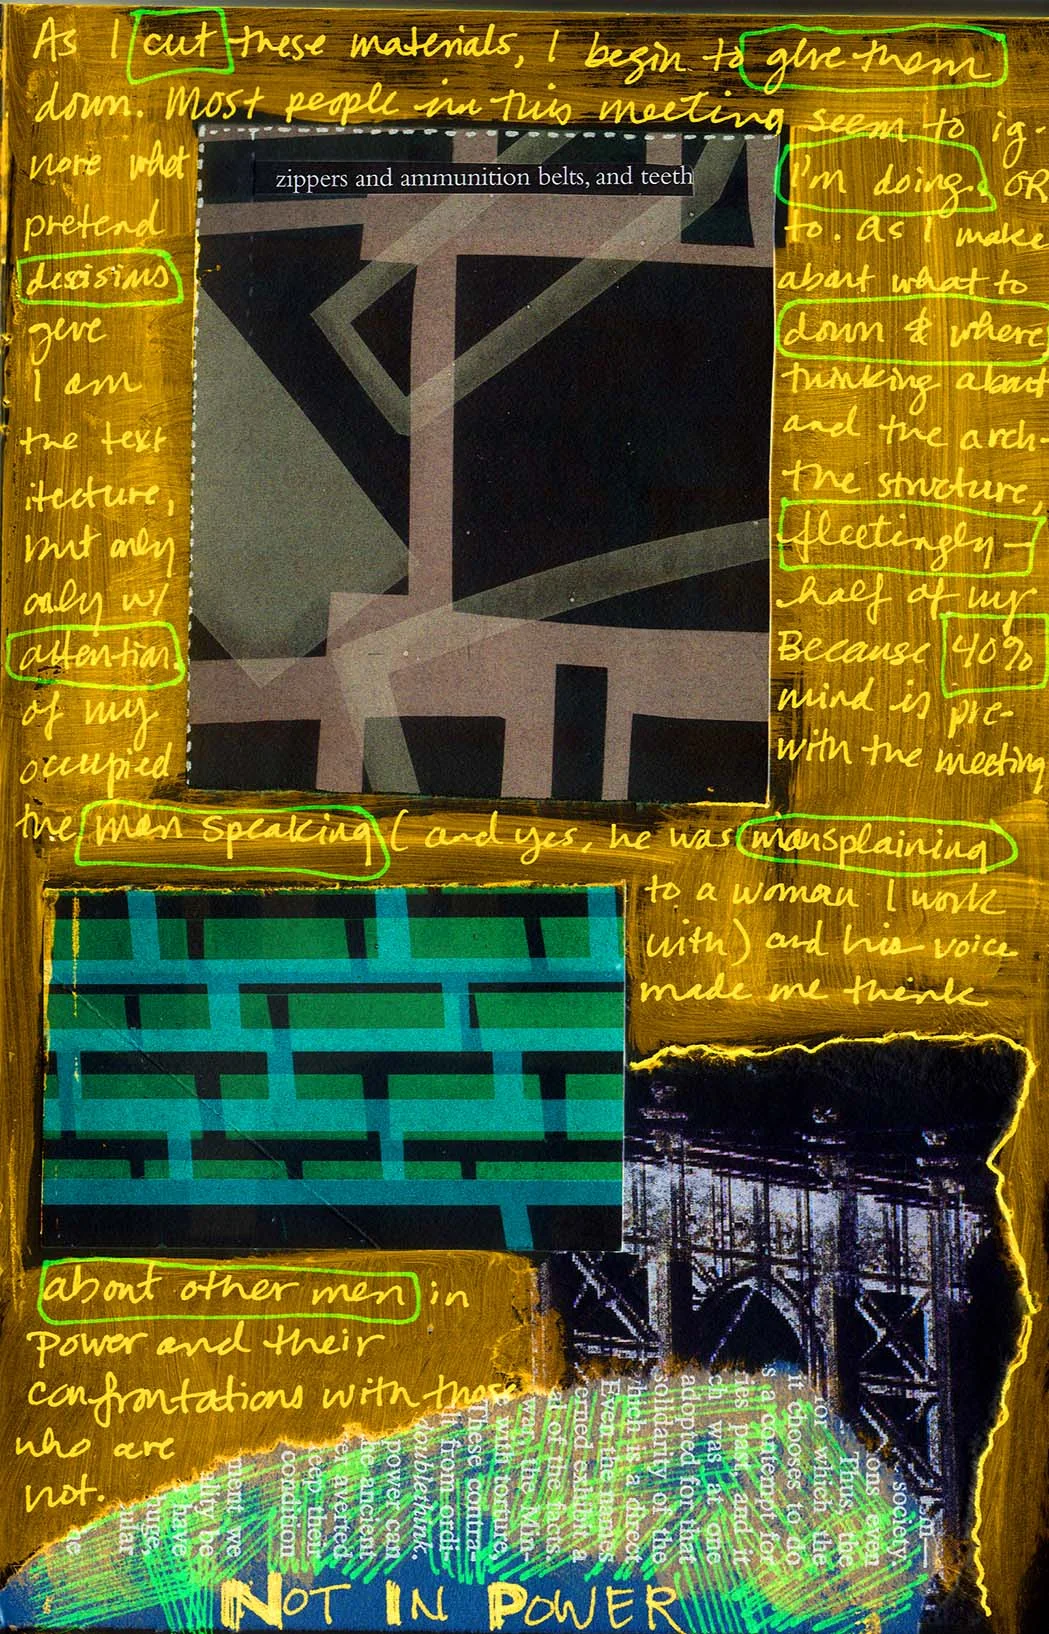 As I cut these materials, I begin to glue them
down. Most people in this meeting seem to ig-
zippers and ammunition belts, and teeth
nore what I'm doing. OR
pretend to. As I make
desisions about what to
geve down & where
I am thinking about
the text and the arch-
itecture, the structure,
but only fleetingly—
only w/ half of my
attention. Because 40%
of my mind is pre-
occupied with the meeting
the man speaking (and yes, he was mansplaining
to a woman I work
with) and his voice
made me think
about other men in
power and their
confrontations with those
who are
not.
society
ons even
Thus the
tor which the
it chooses to do
s a contempt for
its past, and it
ch was at one
adopted for that
solidarity of the
hich is a direct
Even the names
erned exhibit a
al of the facts.
war, the Min-
e with torture,
These contra-
t from ordi-
doublethink.
power can
he ancient
e averted
eep their
condition
ment we
alty be
have
huge,
ular
NOT IN POWER